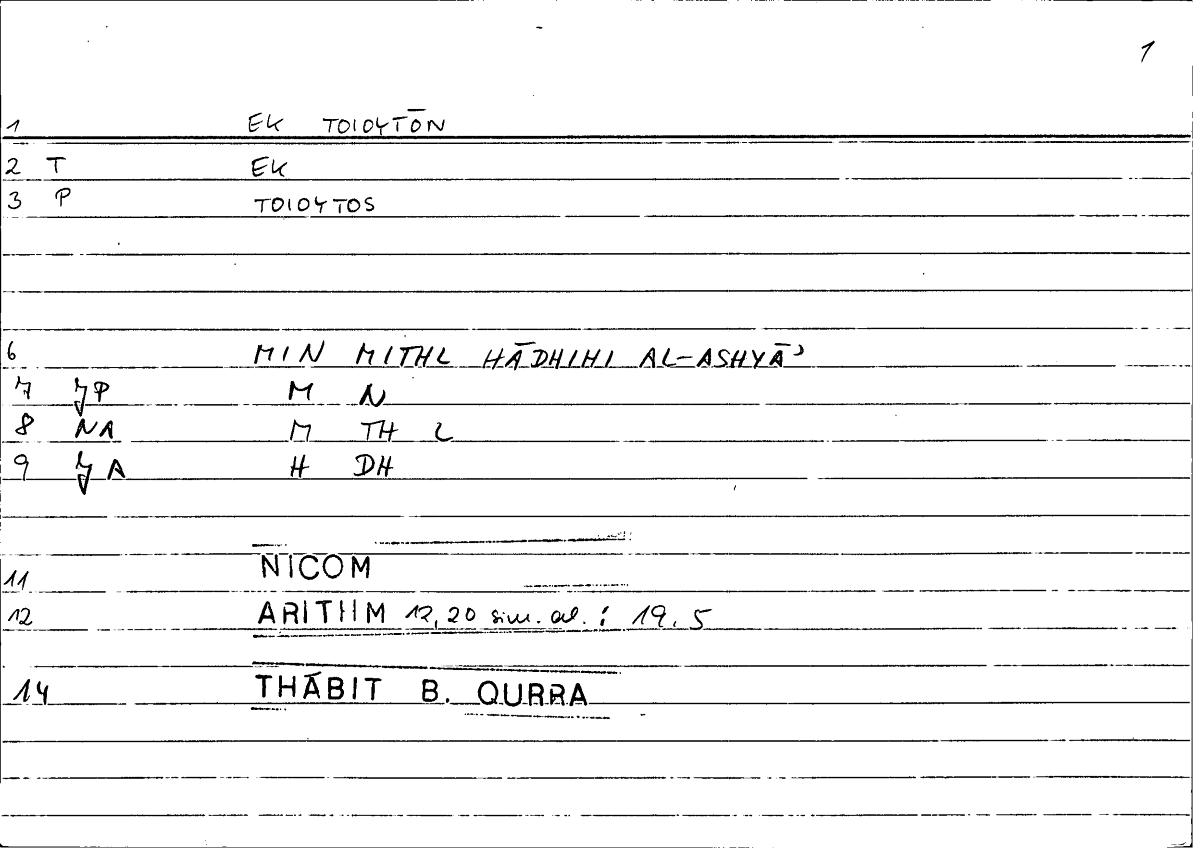 1
1 EK TOIOYTŌN
2 T EK
3 P TOIOYTOS
6 MIN MITHL HĀDHIHI AL-ASHYĀʾ
7 JP M N
8 NA M TH L
9 JA H DH
11 NICOM
12 ARITHM 12,20 sim. al. : 19.5
14 THĀBIT B. QURRA